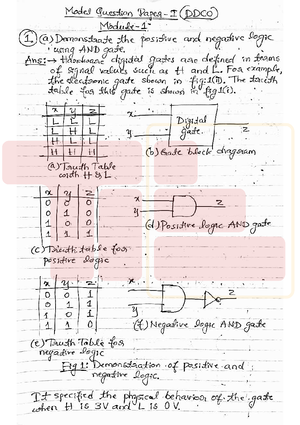 Model Question Paper-I (DDCO)
Module-1
1. (a) Demonstrate the positive and negative logic
using AND gate.
Ans:→ Hardware digital gates are defined in terms
of signal values such as H and L. For example,
the electronic gate shown in fig 1(b). The truth
table for this gate is shown in fig 1(a).
x y z
L L L
L H L
H L L
H H H
(a) Truth Table
with H & L
x
y
Digital
gate
z
(b) Gate block diagram
x y z
0 0 0
0 1 0
1 0 0
1 1 1
(c) Truth table for
positive logic
x
y
z
(d) Positive logic AND gate
x y z
0 0 1
0 1 1
1 0 1
1 1 0
(e) Truth Table for
negative logic
x
y
z
(f) Negative logic AND gate
Fig 1: Demonstration of positive and
negative logic.
It specified the physical behavior of the gate
when H is 3V and L is 0V.